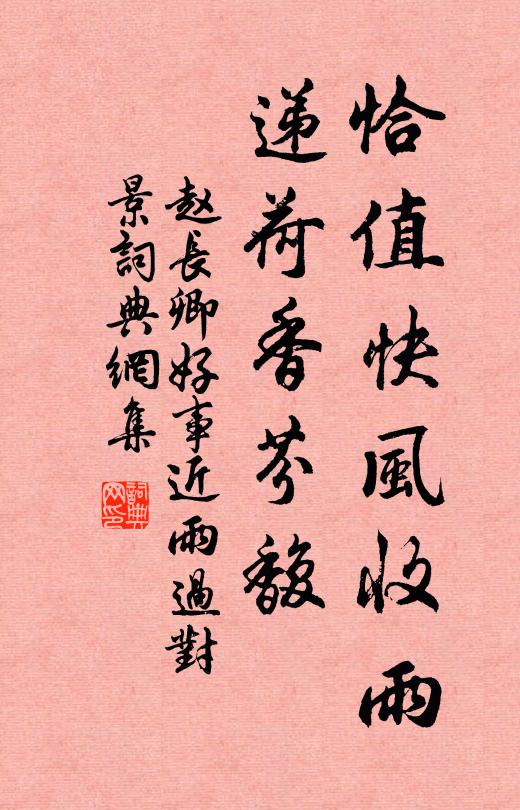 恰值快風收雨
递荷香芬馥
赵長卿好事近雨過對
景詞典網集
詞典網印